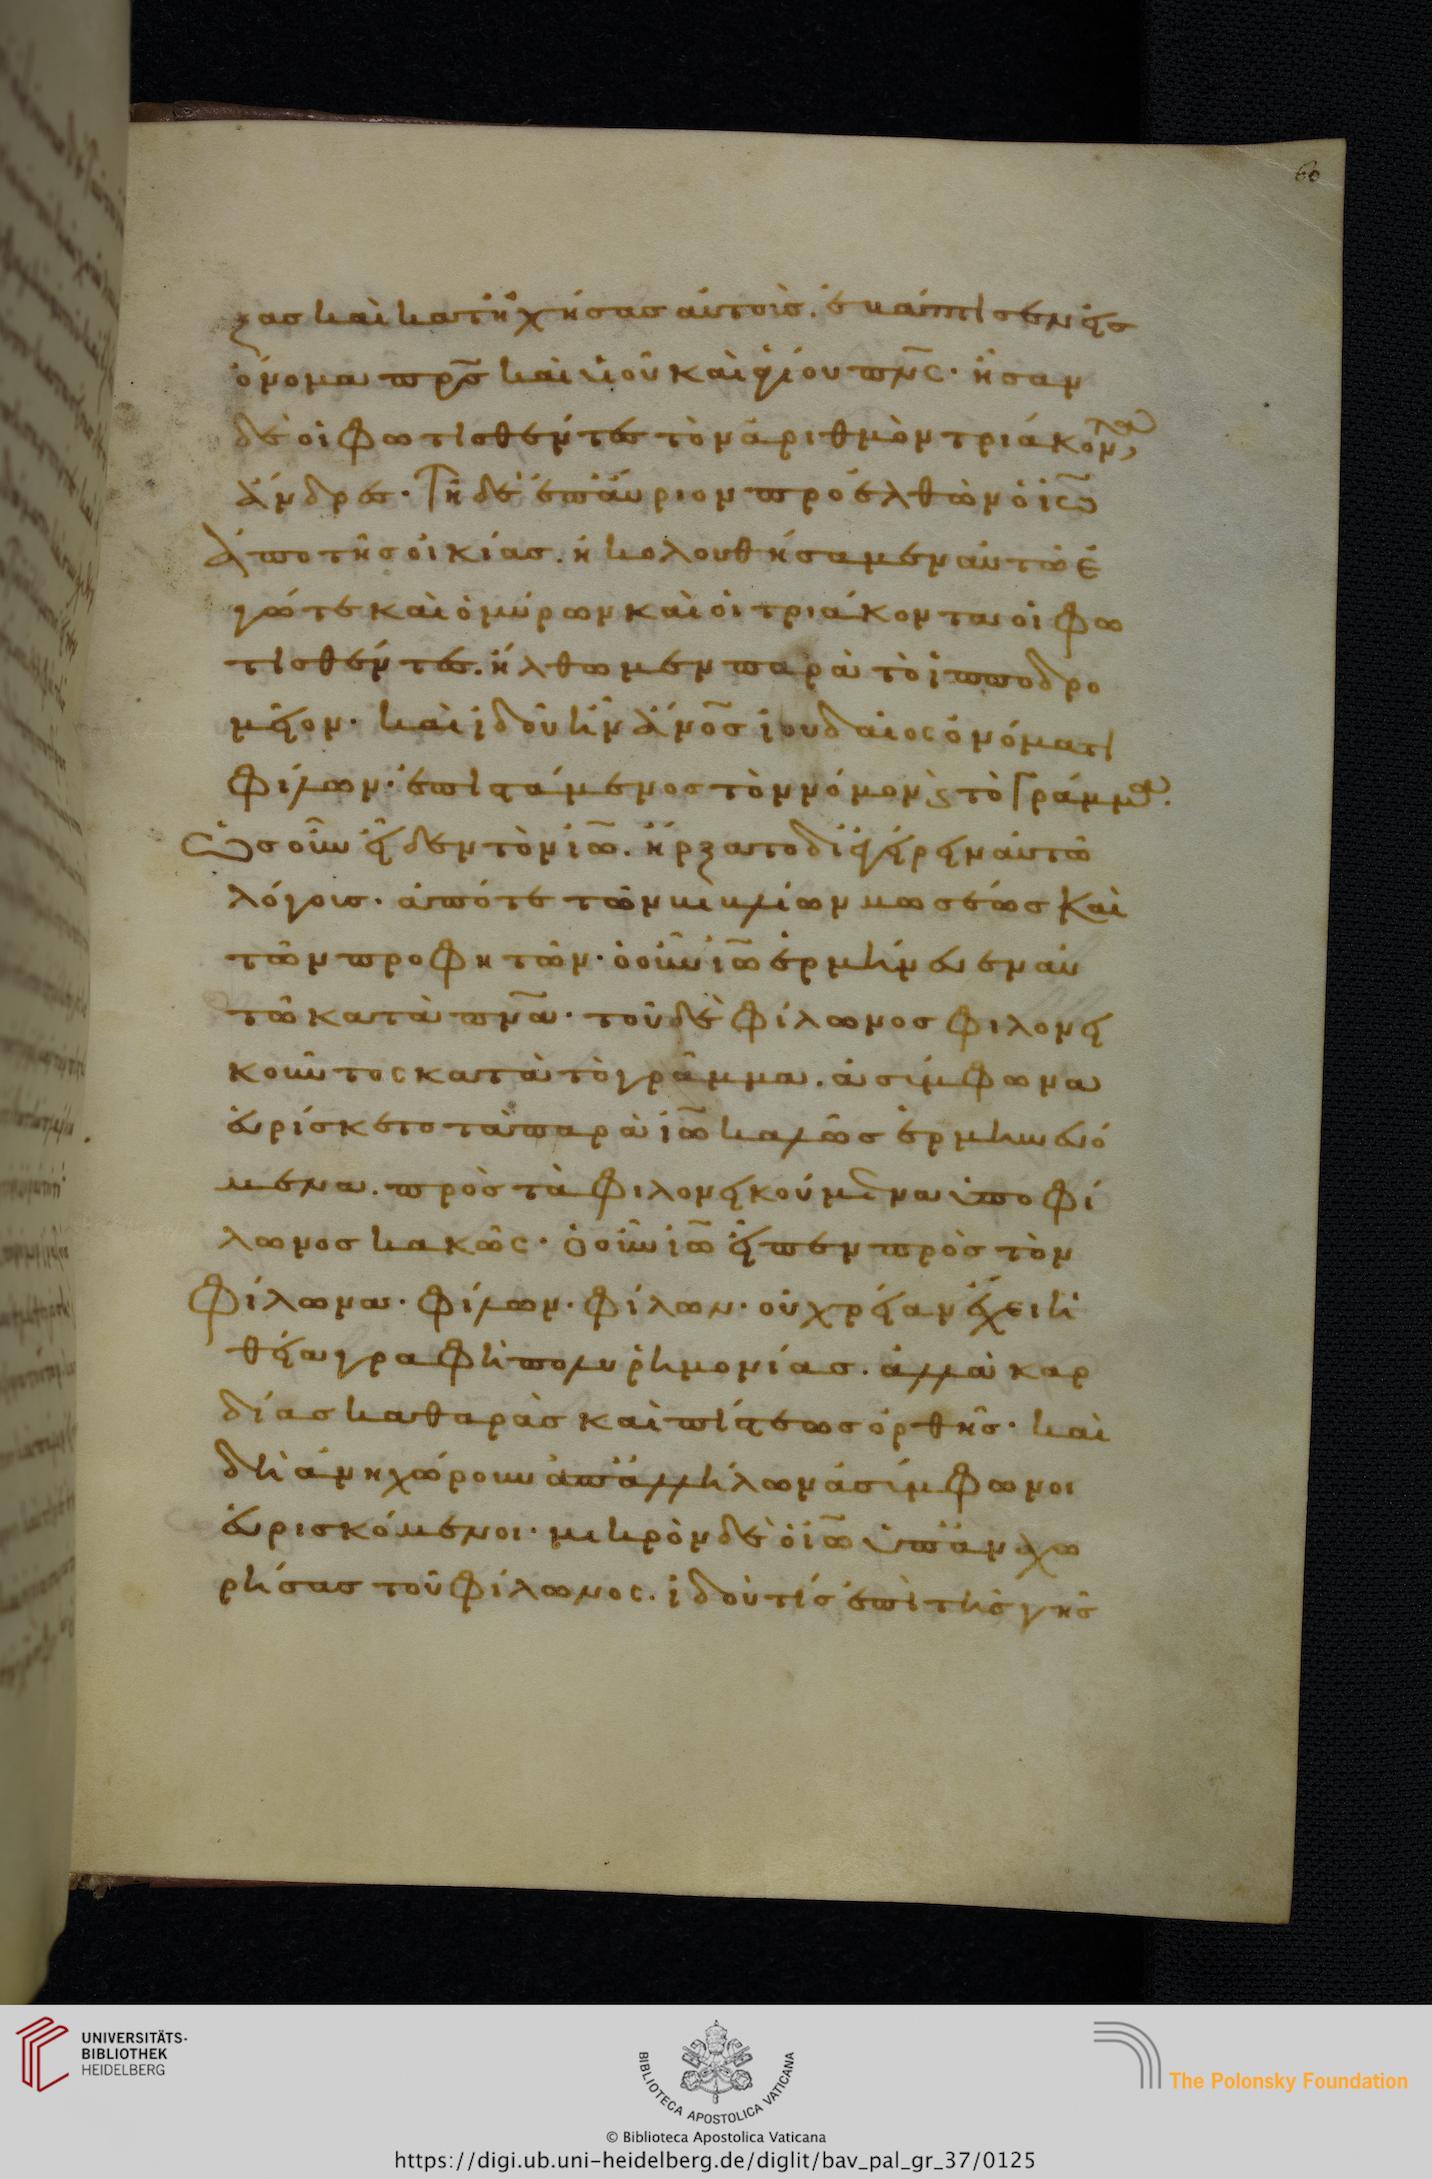 60
ξας καὶ κατηχήσας αὐτοὺς. ἐβάπτισεν εἰς
ὄνομα πρς καὶ υἱοῦ καὶ ἁγίου πνς· ἦσαν
δὲ οἱ φωτισθέντες τὸν ἀριθμὸν τριάκοντα
ἄνδρες· Τῆ δὲ ἐπαύριον προελθὼν ὁ ἰω
ἀπο τῆς οἰκίας. ἠκολουθήσαμεν αὐτῶ ἐ
γώ τε καὶ ὁ μύρων καὶ οἱ τριάκοντα οἱ φω
τισθέντες. ἤλθωμεν παρὰ τὸ ἱπποδρο
μεῖον· καὶ ἰδοὺ ἦν ἄνος ἰουδαῖος ὀνόματι
φίλων· ἐπιστάμενος τὸν νόμον κ τὸ γράμμα.
Ὡς οὖν εἶδεν τὸν ἰω. ἤρξατο διαφέρειν αὐτῶ
λόγοις. ἀπό τε τῶν βιβλίων μωσέως καὶ
τῶν προφητῶν· ὁ οὖν ἰω ἑρμήνευεν αὐ
τῶ κατὰ πνα· τοῦ δὲ φίλωνος φιλονει
κοῦντος κατὰ τὸ γράμμα. ἀσύμφωνα
εὑρίσκετο τὰ παρὰ ἰω καλῶς ἑρμηνευό
μενα. πρὸς τὰ φιλονεικούμενα ὑπο φί
λωνος κακῶς· ὁ οὖν ἰω εἶπεν πρὸς τὸν
φίλωνα· φίλων· φίλων· οὐ χρείαν ἔχει ἡ
θεία γραφὴ πολυρημονίας. ἀλλὰ καρ
δίας καθαρὰς καὶ πίστεως ὀρθῆς· καὶ
δὴ ἀνηχώρουν ἀπ ἀλλήλων ἀσύμφωνοι
εὑρισκόμενοι· μικρὸν δὲ ὁ ἰω ὑπαναχω
ρήσας τοῦ φίλωνος. ἰδού τις ἐπὶ τῆς γῆς
UNIVERSITÄTS-
BIBLIOTHEK
HEIDELBERG
BIBLIOTECA APOSTOLICA VATICANA
The Polonsky Foundation
© Biblioteca Apostolica Vaticana
https://digi.ub.uni-heidelberg.de/diglit/bav_pal_gr_37/0125